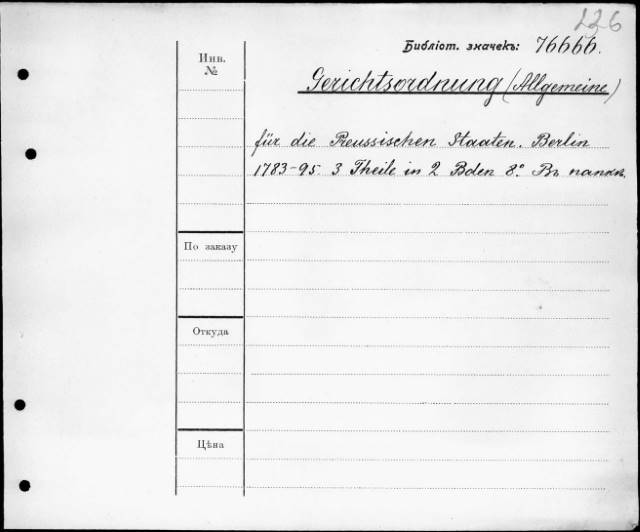 226
Библіот. значекъ: 76666.
Инв.
№
Gerichtsordnung (Allgemeine)
für die Preussischen Staaten. Berlin
1783-95. 3 Theile in 2 Bden 8° Въ папкѣ.
По заказу
Откуда
Цѣна